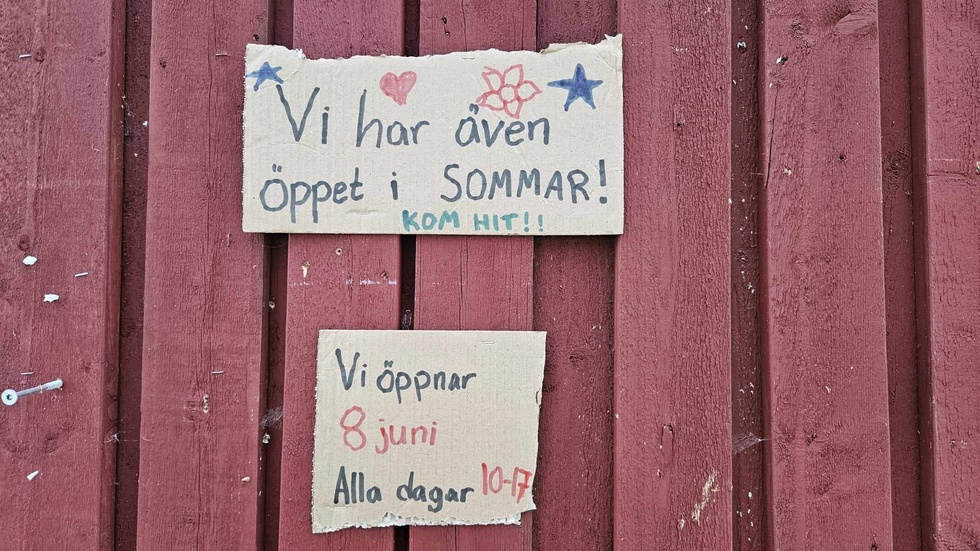 Vi har även
öppet i SOMMAR!
KOM HIT!!
Vi öppnar
8 juni
Alla dagar 10-17